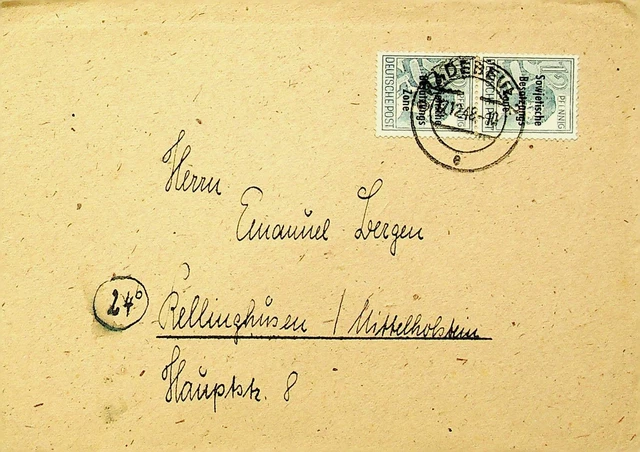 DEUTSCHE POST
Sowjetische
Besatzungs
Zone
12 PFENNIG
Sowjetische
Besatzungs
Zone
RADEBEUL
12.12.48.-10
e
Herrn
Emanuel Bergen
24b
Kellinghusen / Mittelholstein
Hauptstr. 8